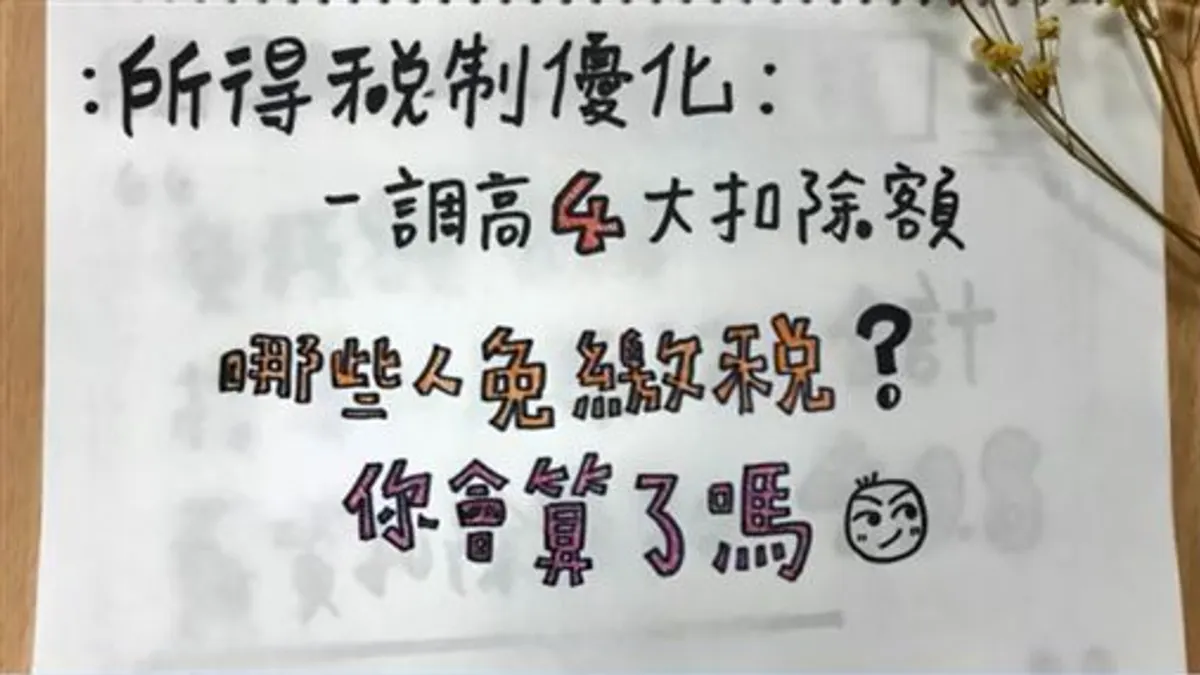 :所得稅制優化:
-調高4大扣除額
哪些人免繳稅?
你會算了嗎